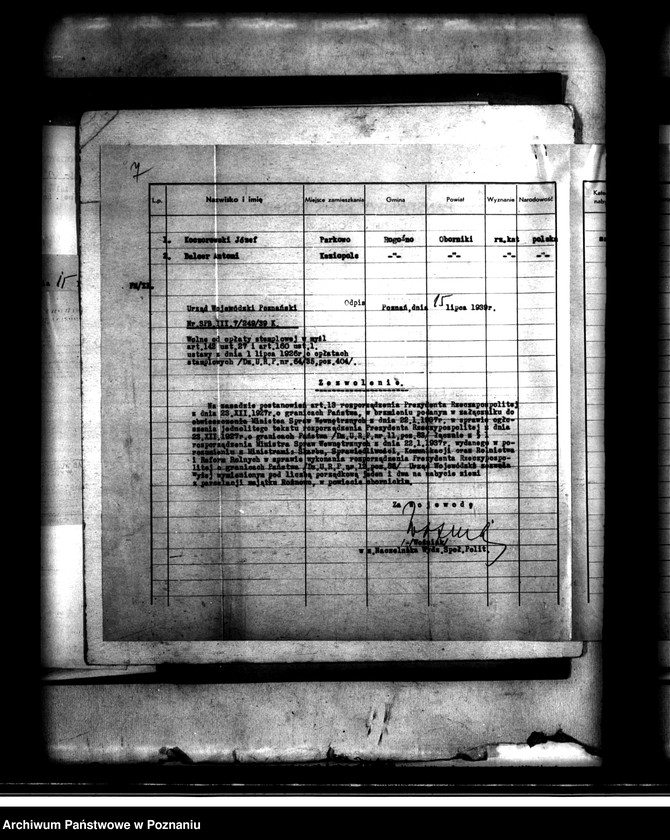 7
L.p. Nazwisko i imię Miejsce zamieszkania Gmina Powiat Wyznanie Narodowość
1. Koszorowski Józef Parkowo Rogoźno Oborniki rz.kat polska
2. Balcer Antoni Kaziopole -"- -"- -"- -"-
Odpis
Urząd Wojewódzki Poznański Poznań,dnia 15 lipca 1939r.
Nr.SPB.III.7/249/39 K.
Wolne od opłaty stemplowej w myśl
art.142 ust.27 i art.160 ust.1.
ustawy z dnia 1 lipca 1926r.o opłatach
stemplowych /Dz.U.R.P.nr.64/35,poz.404/.
Zezwolenie.
Na zasadzie postanowień art.13 rozporządzenia Prezydenta Rzeczypospolitej
z dnia 23.XII.1927r.o granicach Państwa, w brzmieniu podanym w załączniku do
obwieszczenia Ministra Spraw Wewnętrznych z dnia 22.1.1937r. w sprawie ogło-
szenia jednolitego tekstu rozporządzenia Prezydenta Rzeczypospolitej z dnia
23.XII.1927r.o granicach Państwa /Dz.U.R.P.nr.11,poz. oraz § 1
rozporządzenia Ministra Spraw Wewnętrznych z dnia 22.1.1937r. wydanego w po-
rozumieniu z Ministrami: Skarbu, Sprawiedliwości, Komunikacji oraz Rolnictwa
i Reform Rolnych w sprawie wykonania rozporządzenia Prezydenta Rzeczypospo-
litej o granicach Państwa /Dz.U.R.P. nr.12,poz. Urząd Wojewódzki zezwala
wyżej wymienionym pod liczbą porządkową jeden i dwa na nabycie ziemi
z parcelacji majątku Rożnowo, w powiecie obornickim.
Za Wojewodę
/-/Woźniak/
w z.Naczelnika Wydz.Społ.Polit.
Archiwum Państwowe w Poznaniu